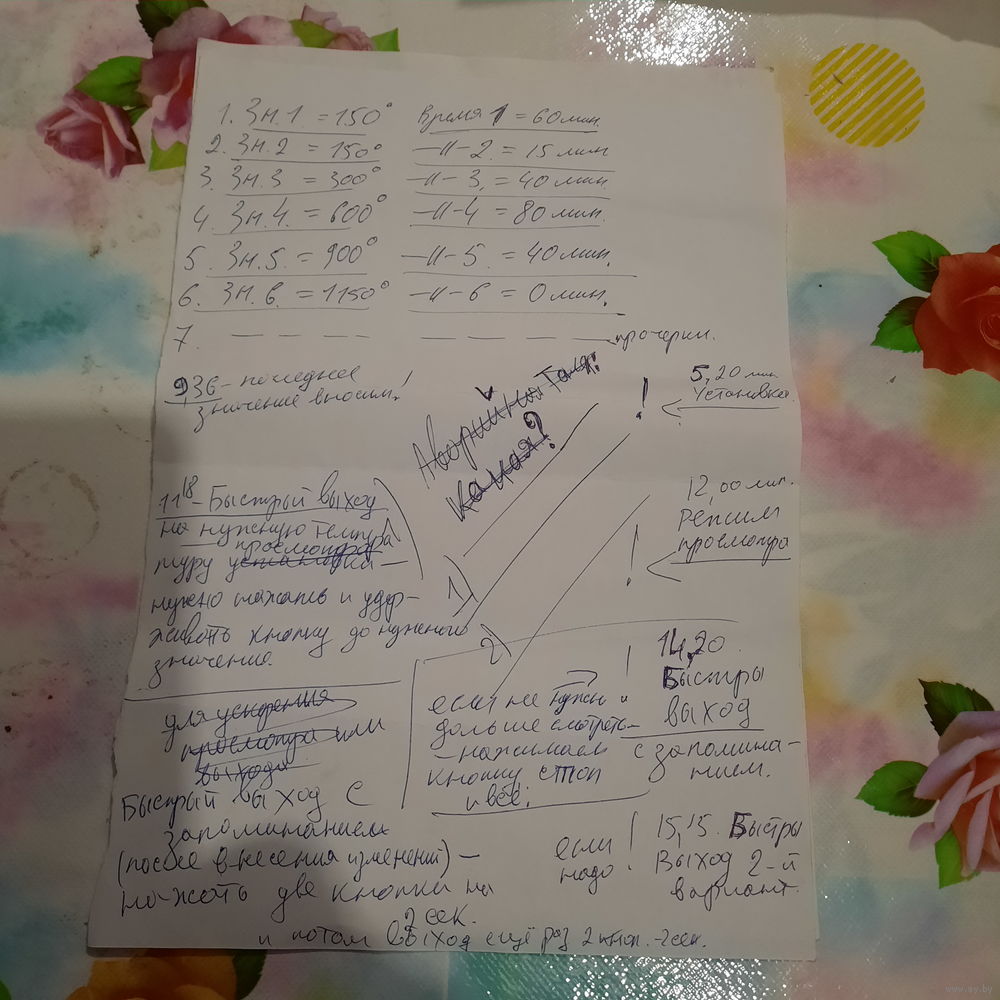 1. Зн.1 = 150° Время 1 = 60 мин.
2. Зн.2 = 150° —||— 2. = 15 мин
3. Зн.3 = 300° —||— 3. = 40 мин
4. Зн.4. = 600° —||— 4 = 80 мин.
5. Зн.5. = 900° —||— 5. = 40 мин.
6. Зн.6. = 1150° —||— 6 = 0 мин.
7. — — — — — — — — прочерки.
9,36 – последнее
значение вносим!
5,20 мин.
Установка
!
Какая?
11¹⁸ – Быстрый выход
на нужную темпера
просмотра
туру установки –
нужно нажать и удер-
живать кнопку до нужного
значения.
1)
2)
12,00 мин.
Режим
просмотра
!
для ускорения
просмотра или
выхода
Быстрый выход с
запоминанием
(после внесения изменений) –
нажать две кнопки на
2 сек.
и потом выход ещё раз 2 кноп. -2 сек.
если не нужны и
дальше смотреть –
– нажимаем
кнопку стоп
и всё.
! 14,20
Быстры
выход
с запомина-
нием.
если
надо
! 15,15. Быстры
Выход 2-й
вариант.
www.ay.by